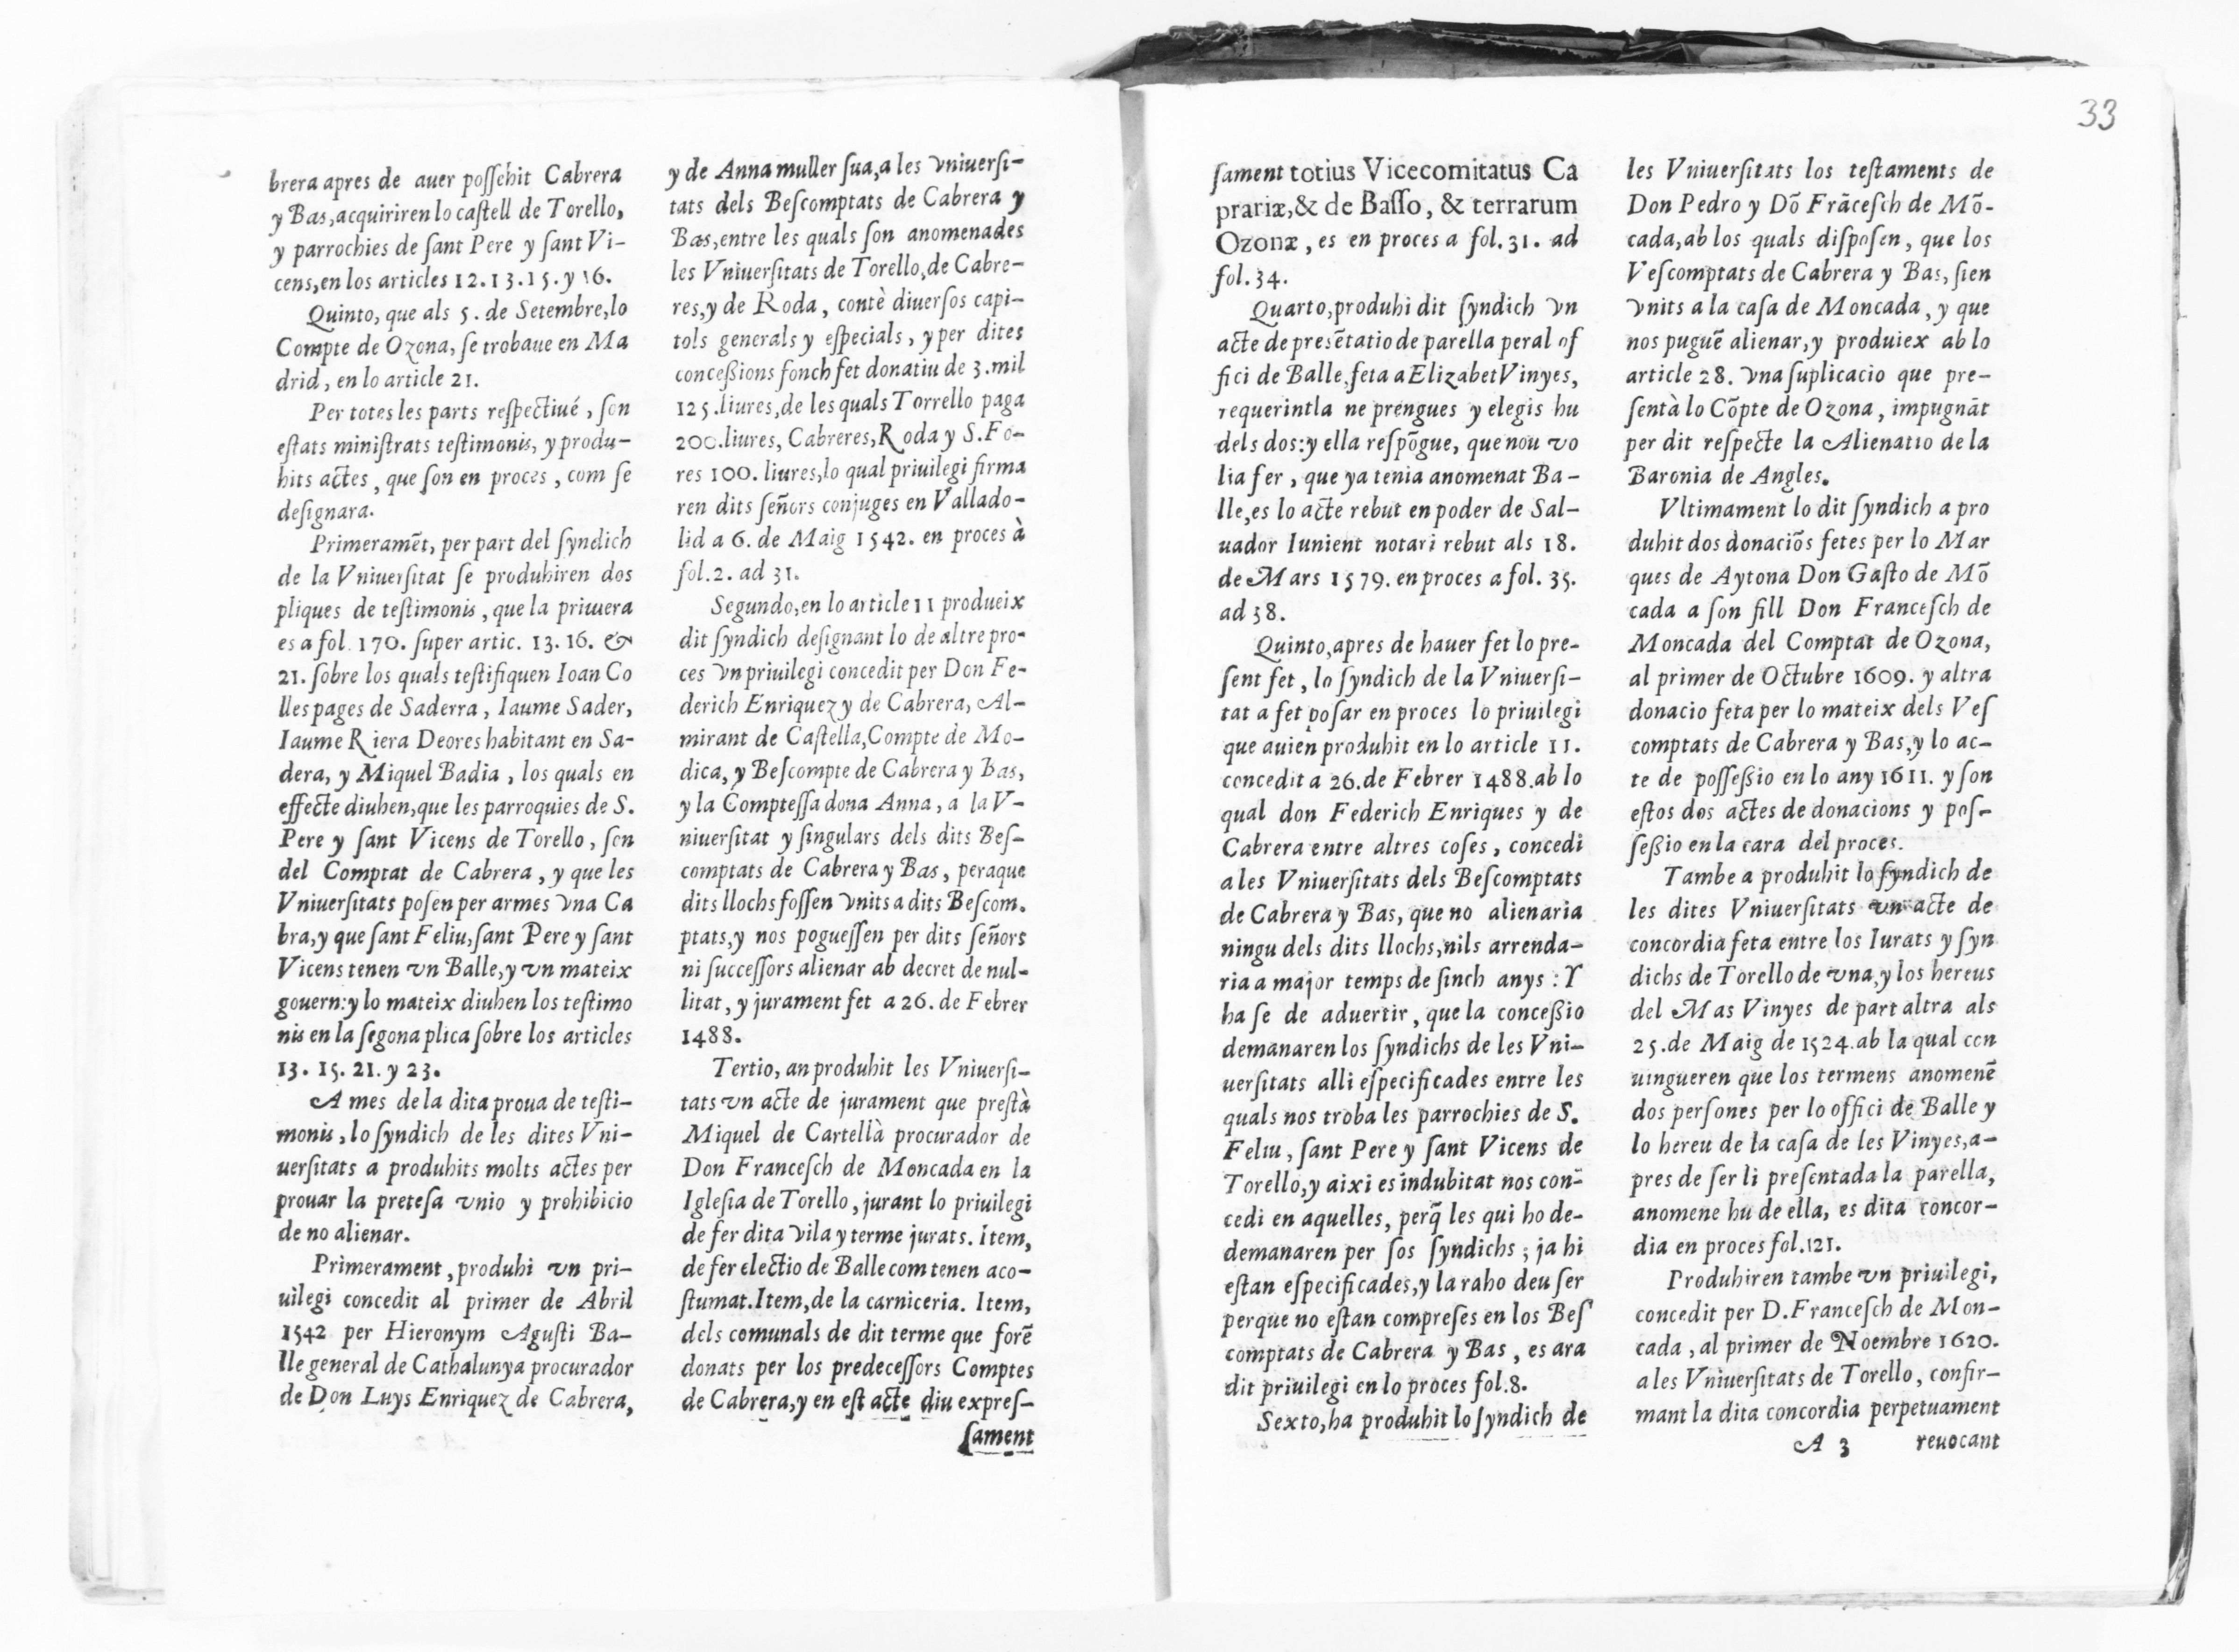 brera apres de auer poſſehit Cabrera
y Bas, acquiriren lo caſtell de Torello,
y parrochies de ſant Pere y ſant Vi-
cens, en los articles 12. 13. 15. y 16.
Quinto, que als 5. de Setembre, lo
Compte de Ozona, ſe trobaue en Ma
drid, en lo article 21.
Per totes les parts reſpectiué, ſon
eſtats miniſtrats teſtimonis, y produ-
hits actes, que ſon en proces, com ſe
deſignara.
Primeramēt, per part del ſyndich
de la Vniuerſitat ſe produhiren dos
pliques de teſtimonis, que la primera
es a fol. 170. ſuper artic. 13. 16. &
21. ſobre los quals teſtifiquen Ioan Co
lles pages de Saderra, Iaume Sader,
Iaume Riera Deores habitant en Sa-
dera, y Miquel Badia, los quals en
effecte diuhen, que les parroquies de S.
Pere y ſant Vicens de Torello, ſon
del Comptat de Cabrera, y que les
Vniuerſitats poſen per armes vna Ca
bra, y que ſant Feliu, ſant Pere y ſant
Vicens tenen vn Balle, y vn mateix
gouern: y lo mateix diuhen los teſtimo
nis en la ſegona plica ſobre los articles
13. 15. 21. y 23.
A mes de la dita proua de teſti-
monis, lo ſyndich de les dites Vni-
uerſitats a produhits molts actes per
prouar la preteſa vnio y prohibicio
de no alienar.
Primerament, produhi vn pri-
uilegi concedit al primer de Abril
1542 per Hieronym Aguſti Ba-
lle general de Cathalunya procurador
de Don Luys Enriquez de Cabrera,
y de Anna muller ſua, a les vniuerſi-
tats dels Beſcomptats de Cabrera y
Bas, entre les quals ſon anomenades
les Vniuerſitats de Torello, de Cabre-
res, y de Roda, contè diuerſos capi-
tols generals y eſpecials, y per dites
conceßions fonch fet donatiu de 3. mil
125. liures, de les quals Torrello paga
200. liures, Cabreres, Roda y S. Fo-
res 100. liures, lo qual priuilegi firma
ren dits ſeñors conjuges en Vallado-
lid a 6. de Maig 1542. en proces à
fol. 2. ad 31.
Segundo, en lo article 11 produeix
dit ſyndich deſignant lo de altre pro-
ces vn priuilegi concedit per Don Fe-
derich Enriquez y de Cabrera, Al-
mirant de Caſtella, Compte de Mo-
dica, y Beſcompte de Cabrera y Bas,
y la Compteſſa dona Anna, a la V-
niuerſitat y ſingulars dels dits Beſ-
comptats de Cabrera y Bas, peraque
dits llochs foſſen vnits a dits Beſcom.
ptats, y nos pogueſſen per dits ſeñors
ni ſucceſſors alienar ab decret de nul-
litat, y jurament fet a 26. de Febrer
1488.
Tertio, an produhit les Vniuerſi-
tats vn acte de jurament que preſtà
Miquel de Cartellà procurador de
Don Franceſch de Moncada en la
Igleſia de Torello, jurant lo priuilegi
de fer dita vila y terme jurats. Item,
de fer electio de Balle com tenen aco-
ſtumat. Item, de la carniceria. Item,
dels comunals de dit terme que forē
donats per los predeceſſors Comptes
de Cabrera, y en eſt acte diu expreſ-
ſament
33
ſament totius Vicecomitatus Ca
prariæ, & de Baſſo, & terrarum
Ozonæ, es en proces a fol. 31. ad
fol. 34.
Quarto, produhi dit ſyndich vn
acte de preſētatio de parella per al of
fici de Balle, feta a Elizabet Vinyes,
requerintla ne prengues y elegis hu
dels dos: y ella reſpōgue, que nou vo
lia fer, que ya tenia anomenat Ba-
lle, es lo acte rebut en poder de Sal-
uador Iunient notari rebut als 18.
de Mars 1579. en proces a fol. 35.
ad 38.
Quinto, apres de hauer fet lo pre-
ſent fet, lo ſyndich de la Vniuerſi-
tat a fet poſar en proces lo priuilegi
que auien produhit en lo article 11.
concedit a 26. de Febrer 1488. ab lo
qual don Federich Enriques y de
Cabrera entre altres coſes, concedi
a les Vniuerſitats dels Beſcomptats
de Cabrera y Bas, que no alienaria
ningu dels dits llochs, nils arrenda-
ria a major temps de ſinch anys: Y
ha ſe de aduertir, que la conceßio
demanaren los ſyndichs de les Vni-
uerſitats alli eſpecificades entre les
quals nos troba les parrochies de S.
Feliu, ſant Pere y ſant Vicens de
Torello, y aixi es indubitat nos con-
cedi en aquelles, perq̃ les qui ho de-
demanaren per ſos ſyndichs; ja hi
eſtan eſpecificades, y la raho deu ſer
perque no eſtan compreſes en los Beſ
comptats de Cabrera y Bas, es ara
dit priuilegi en lo proces fol. 8.
Sexto, ha produhit lo ſyndich de
les Vniuerſitats los teſtaments de
Don Pedro y Dō Frāceſch de Mō-
cada, ab los quals diſpoſen, que los
Veſcomptats de Cabrera y Bas, ſien
vnits a la caſa de Moncada, y que
nos puguē alienar, y produiex ab lo
article 28. vna ſuplicacio que pre-
ſentà lo Cōpte de Ozona, impugnāt
per dit reſpecte la Alienatio de la
Baronia de Angles.
Vltimament lo dit ſyndich a pro
duhit dos donaciōs fetes per lo Mar
ques de Aytona Don Gaſto de Mō
cada a ſon fill Don Franceſch de
Moncada del Comptat de Ozona,
al primer de Octubre 1609. y altra
donacio feta per lo mateix dels Veſ
comptats de Cabrera y Bas, y lo ac-
te de poſſeßio en lo any 1611. y ſon
eſtos dos actes de donacions y poſ-
ſeßio en la cara del proces.
Tambe a produhit lo ſyndich de
les dites Vniuerſitats vn acte de
concordia feta entre los Iurats y ſyn
dichs de Torello de vna, y los hereus
del Mas Vinyes de part altra als
25. de Maig de 1524. ab la qual con
uingueren que los termens anomenē
dos perſones per lo offici de Balle y
lo hereu de la caſa de les Vinyes, a-
pres de ſer li preſentada la parella,
anomene hu de ella, es dita concor-
dia en proces fol. 121.
Produhiren tambe vn priuilegi,
concedit per D. Franceſch de Mon-
cada, al primer de Noembre 1620.
a les Vniuerſitats de Torello, confir-
mant la dita concordia perpetuament
A 3 reuocant